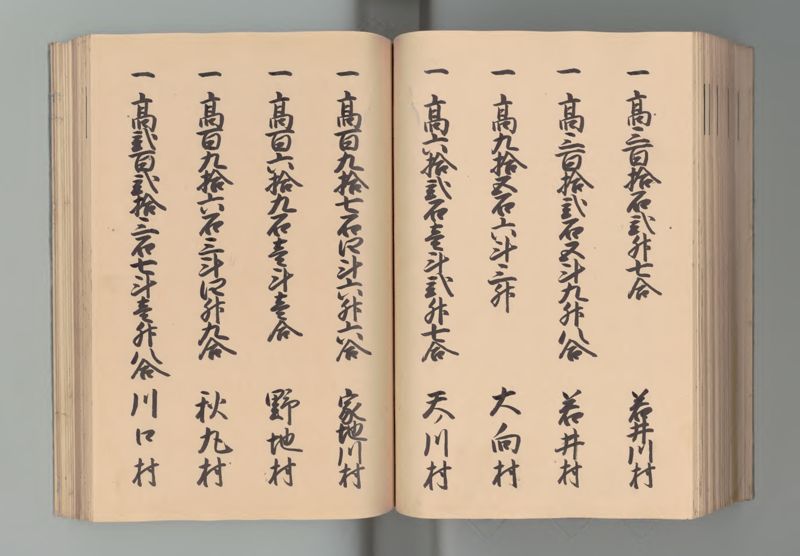 一 高三百拾石弐升七合 若井川村
一 高三百拾弐石五斗九升八合 若井村
一 高九拾五石六斗三升 大向村
一 高六拾弐石壱斗弐升七合 天ノ川村
一 高百九拾七石四斗六升六合 家地川村
一 高百六拾九石壱斗壱合 野地村
一 高百九拾六石三斗四升九合 秋丸村
一 高弐百弐拾三石七斗壱升八合 川口村